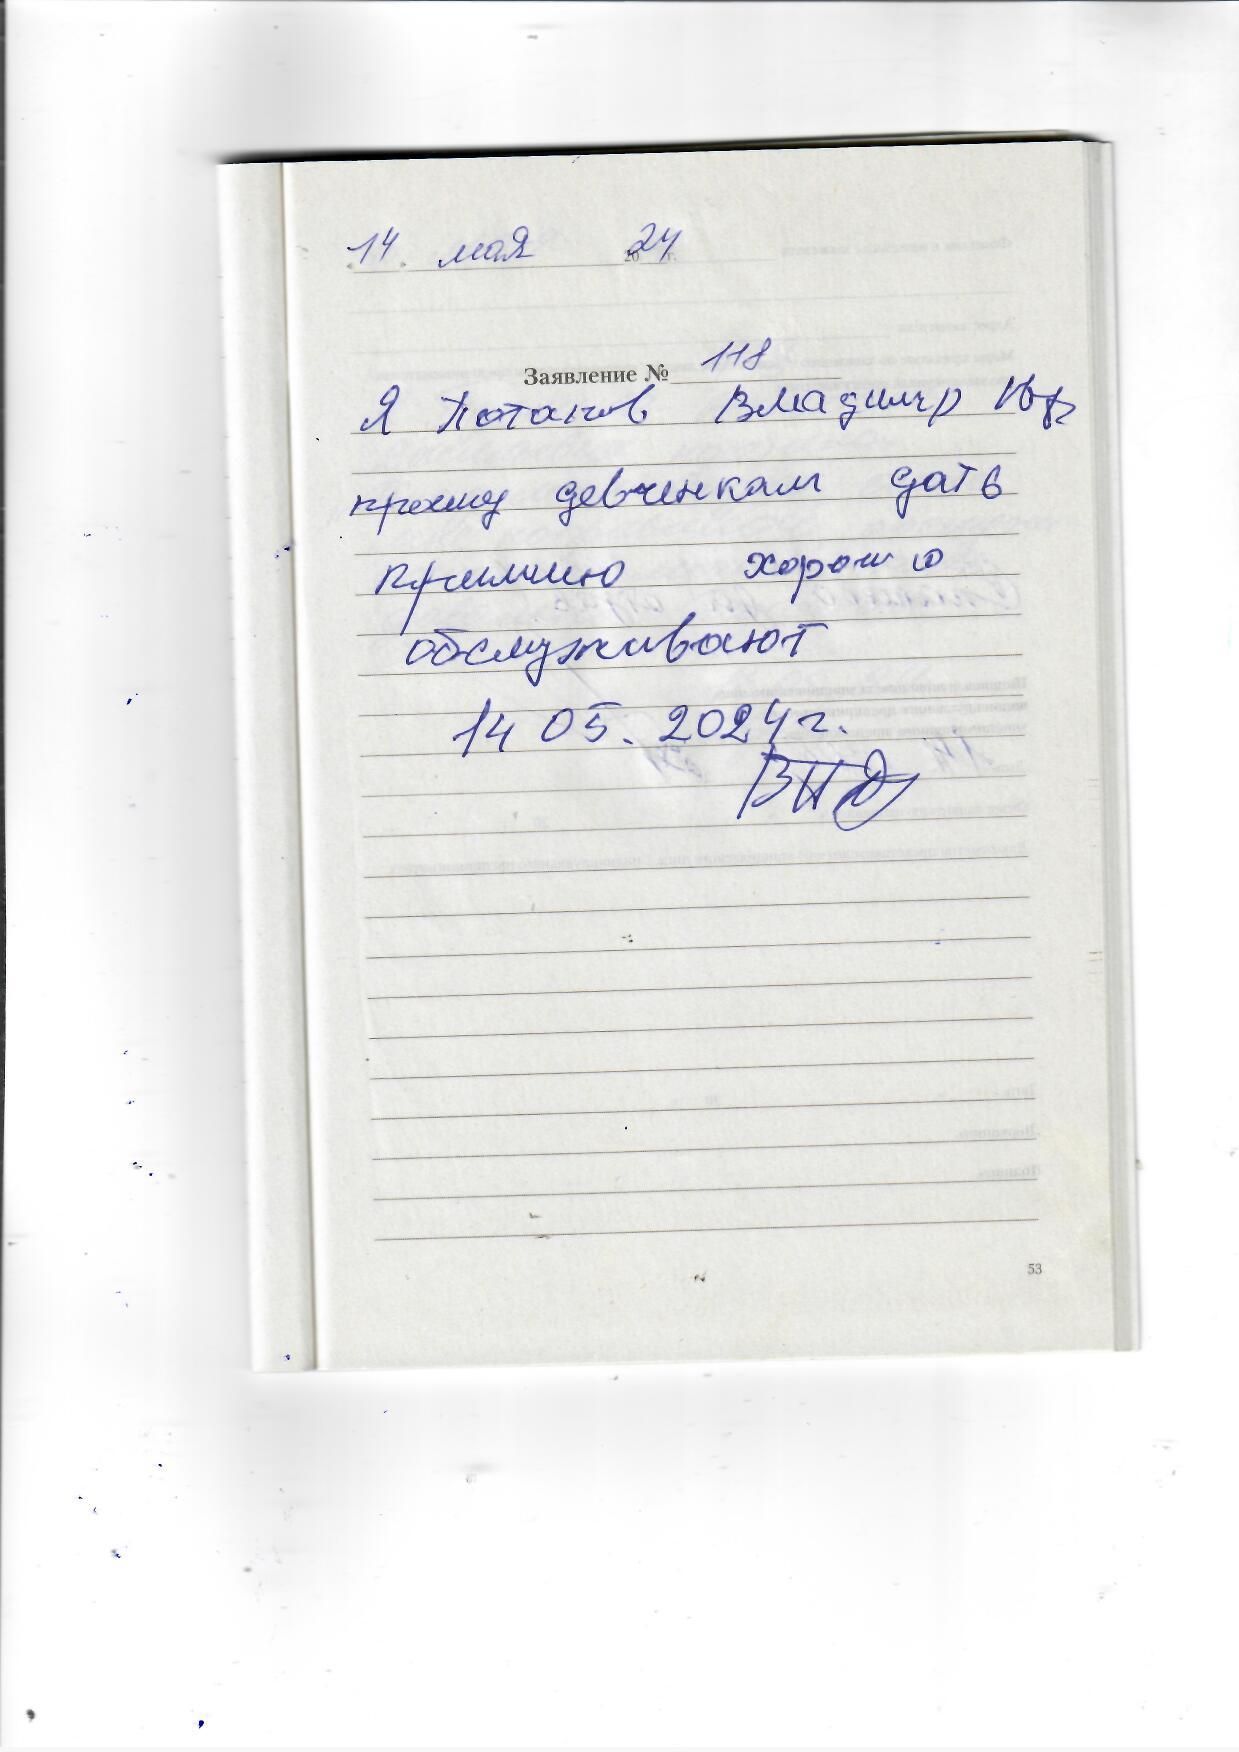 «14» мая 2024 г.
Заявление № 118
Я Потапов Владимир
прошу девченкам дать
примию хорошо
обслуживают
14 05. 2024 г.
53